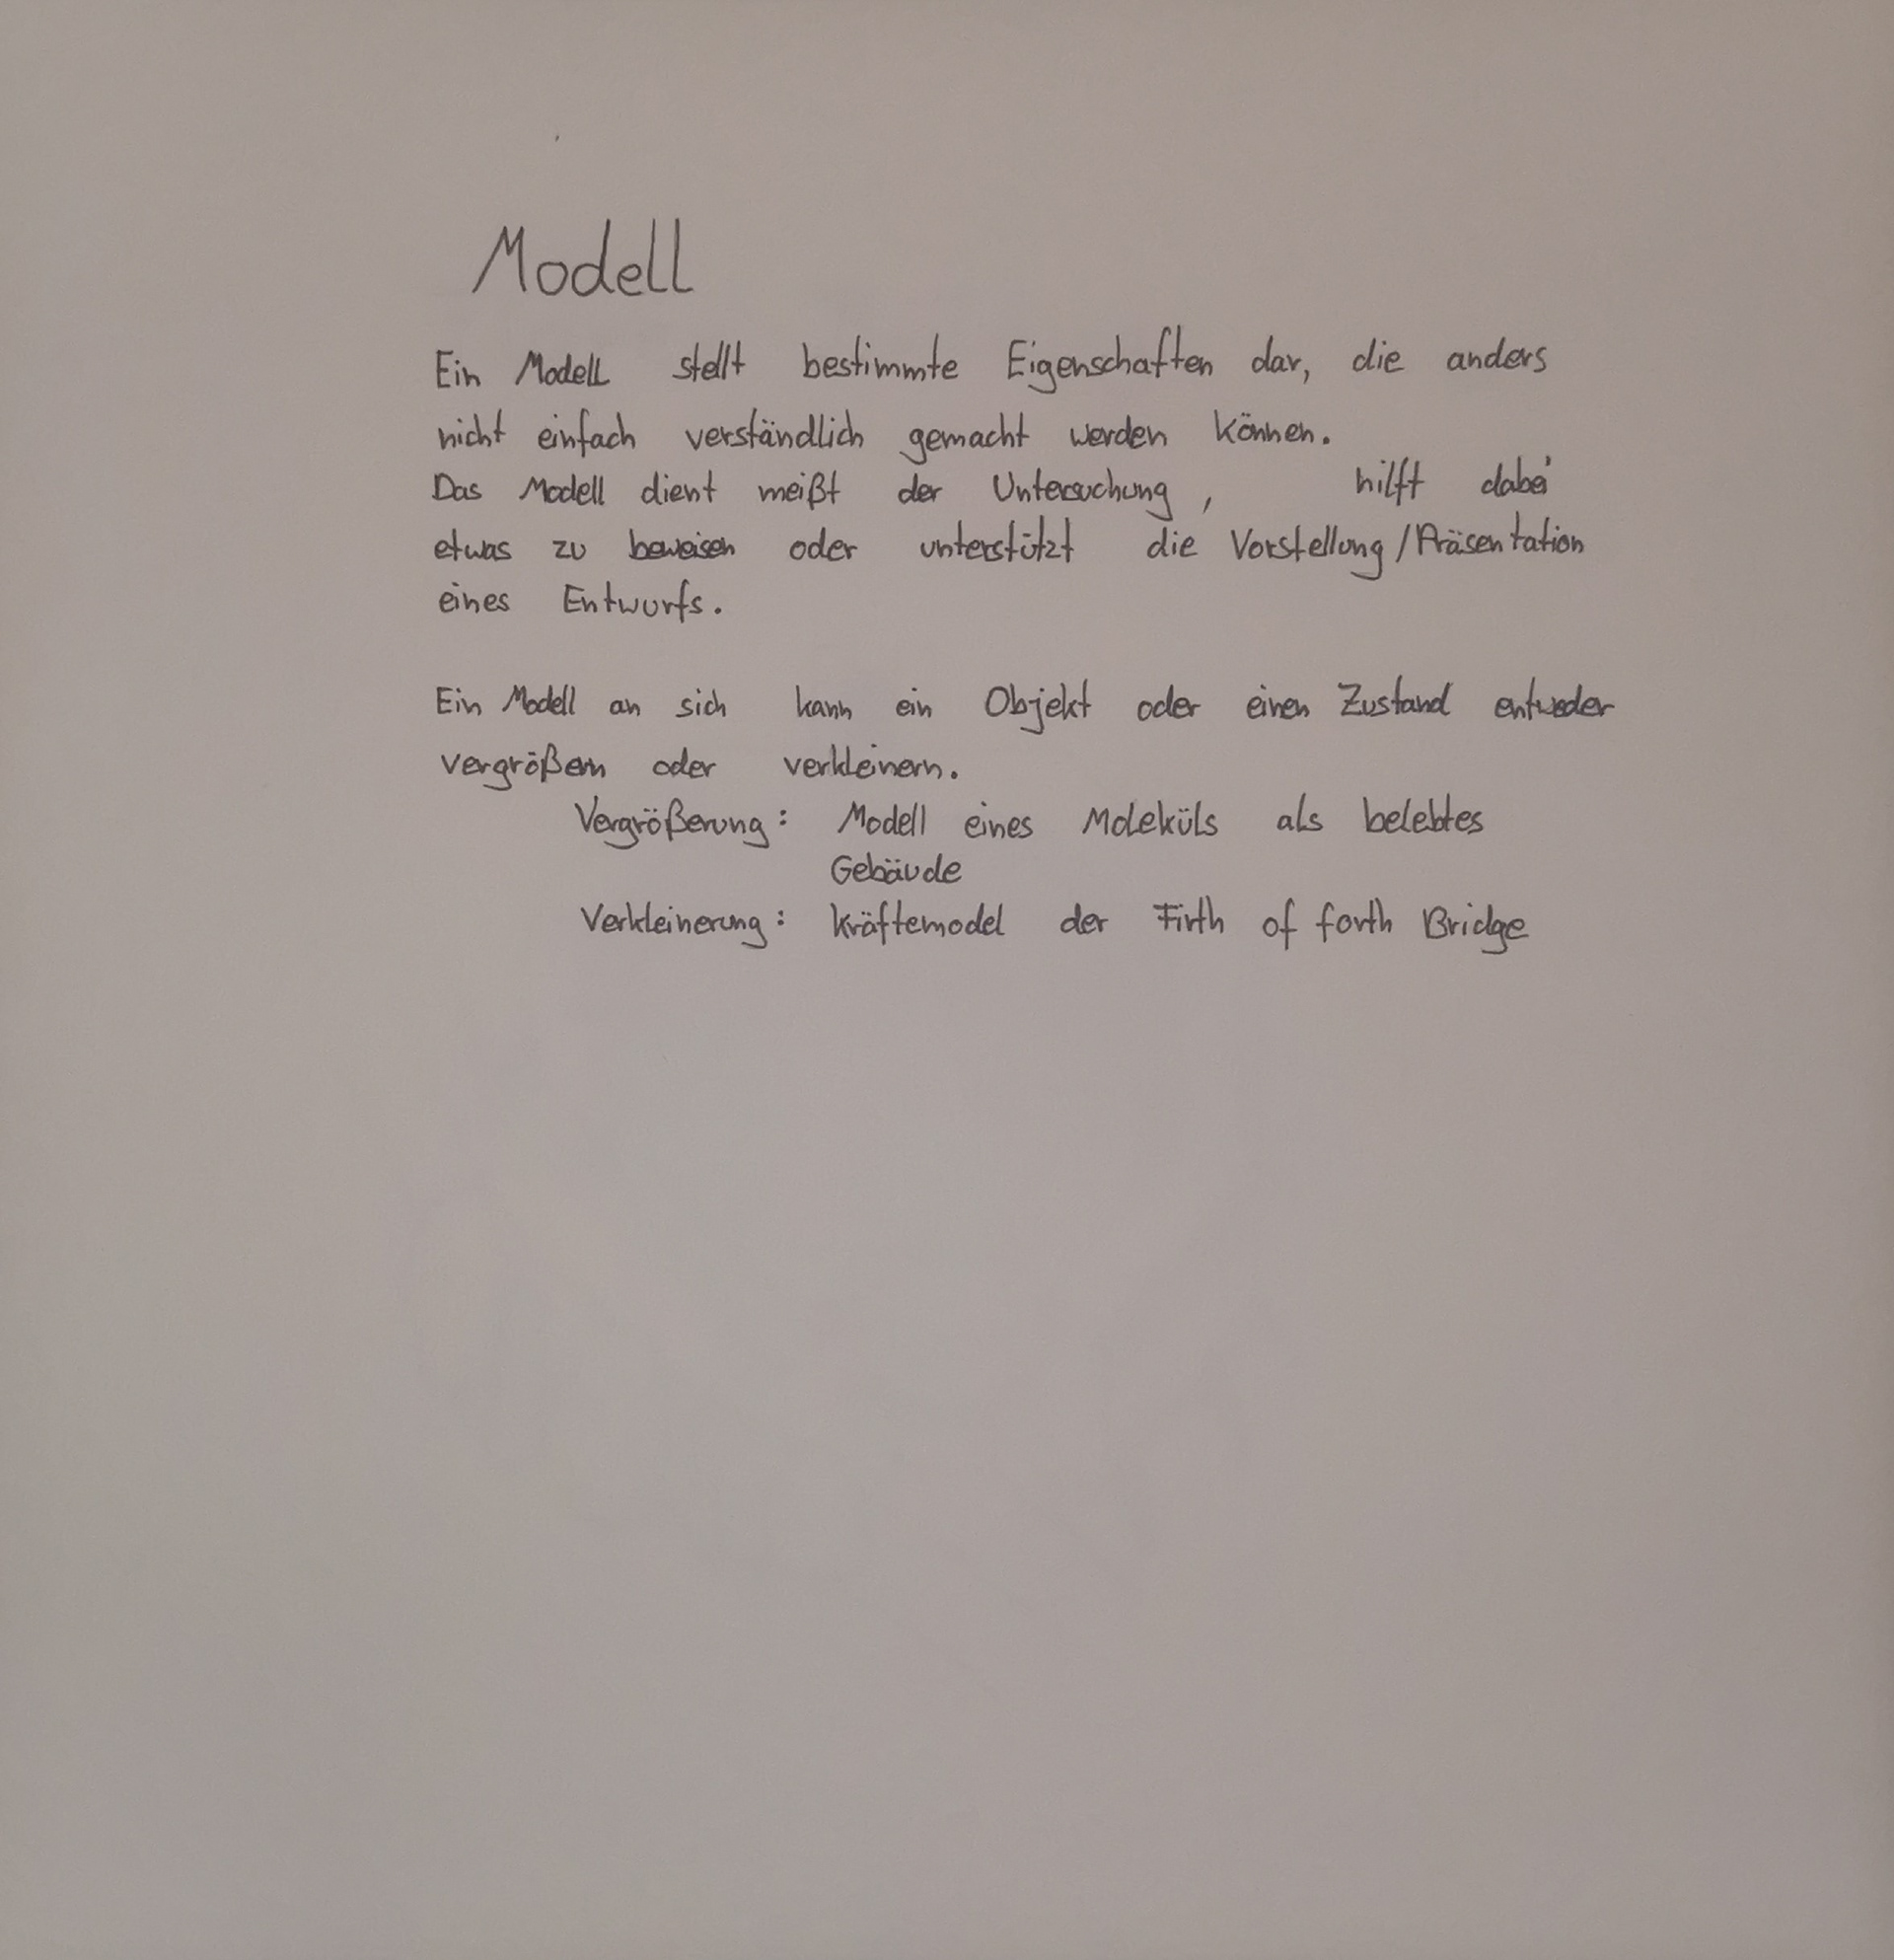 Modell
Ein Modell stellt bestimmte Eigenschaften dar, die anders
nicht einfach verständlich gemacht werden können.
Das Modell dient meißt der Untersuchung, hilft dabei
etwas zu beweisen oder unterstützt die Vorstellung/Präsentation
eines Entwurfs.
Ein Modell an sich kann ein Objekt oder einen Zustand entweder
vergrößern oder verkleinern.
Vergrößerung: Modell eines Moleküls als belebtes
Gebäude
Verkleinerung: Kräftemodel der Firth of forth Bridge